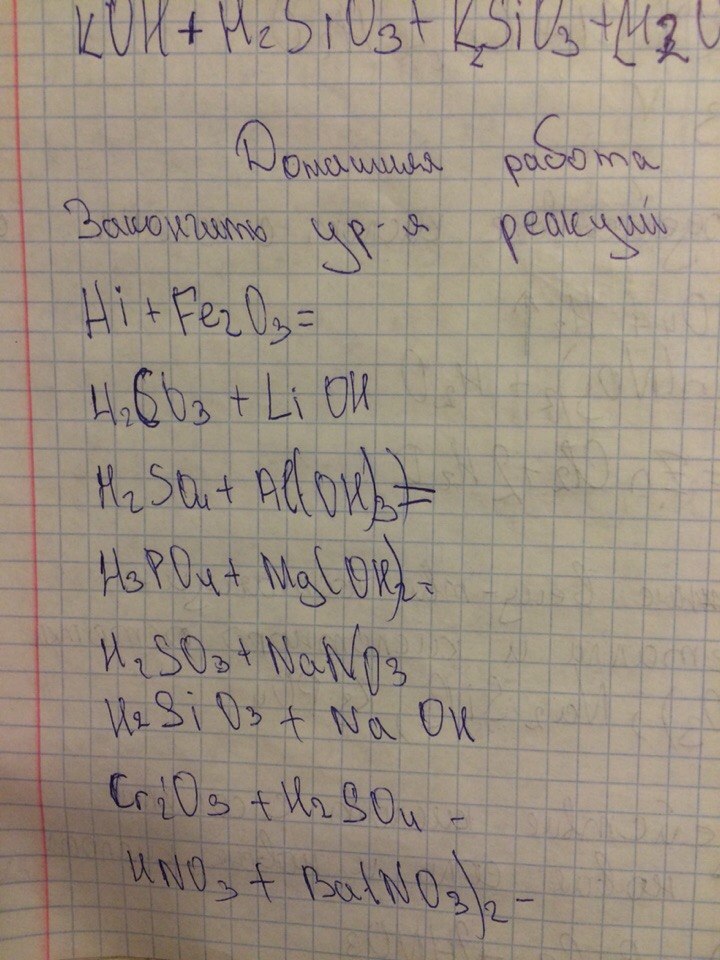 KOH + H₂SiO₃ + K₂SiO₃ + H₂O
Домашняя работа
Закончить ур-я реакций
Hi + Fe₂O₃ =
H₂CO₃ + Li OH
H₂SO₄ + Al(OH)₃) =
H₃PO₄ + Mg(OH)₂ =
H₂SO₃ + NaNO₃
H₂SiO₃ + Na OH
Cr₂O₃ + H₂SO₄ -
HNO₃ + Ba(NO₃)₂ -